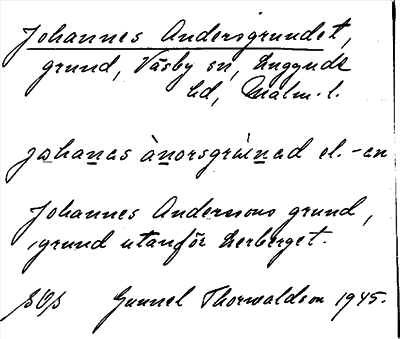 Johannes Andersgrundet,
grund, Väsby sn, Luggude
hd, Malm. l.
johanas ànorsgrùnad el. -en
Johannes Anderssons grund,
grund utanför Lerberget.
SOS Gunnel Thorwaldson 1945.